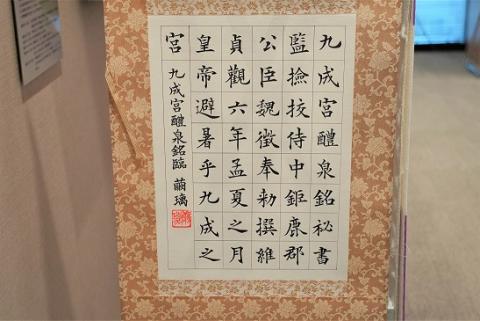 九成宮醴泉銘祕書
監撿挍侍中鉅鹿郡
公臣魏徵奉勑撰維
貞觀六年孟夏之月
皇帝避暑乎九成之
宮
九成宮醴泉銘臨 繭璃